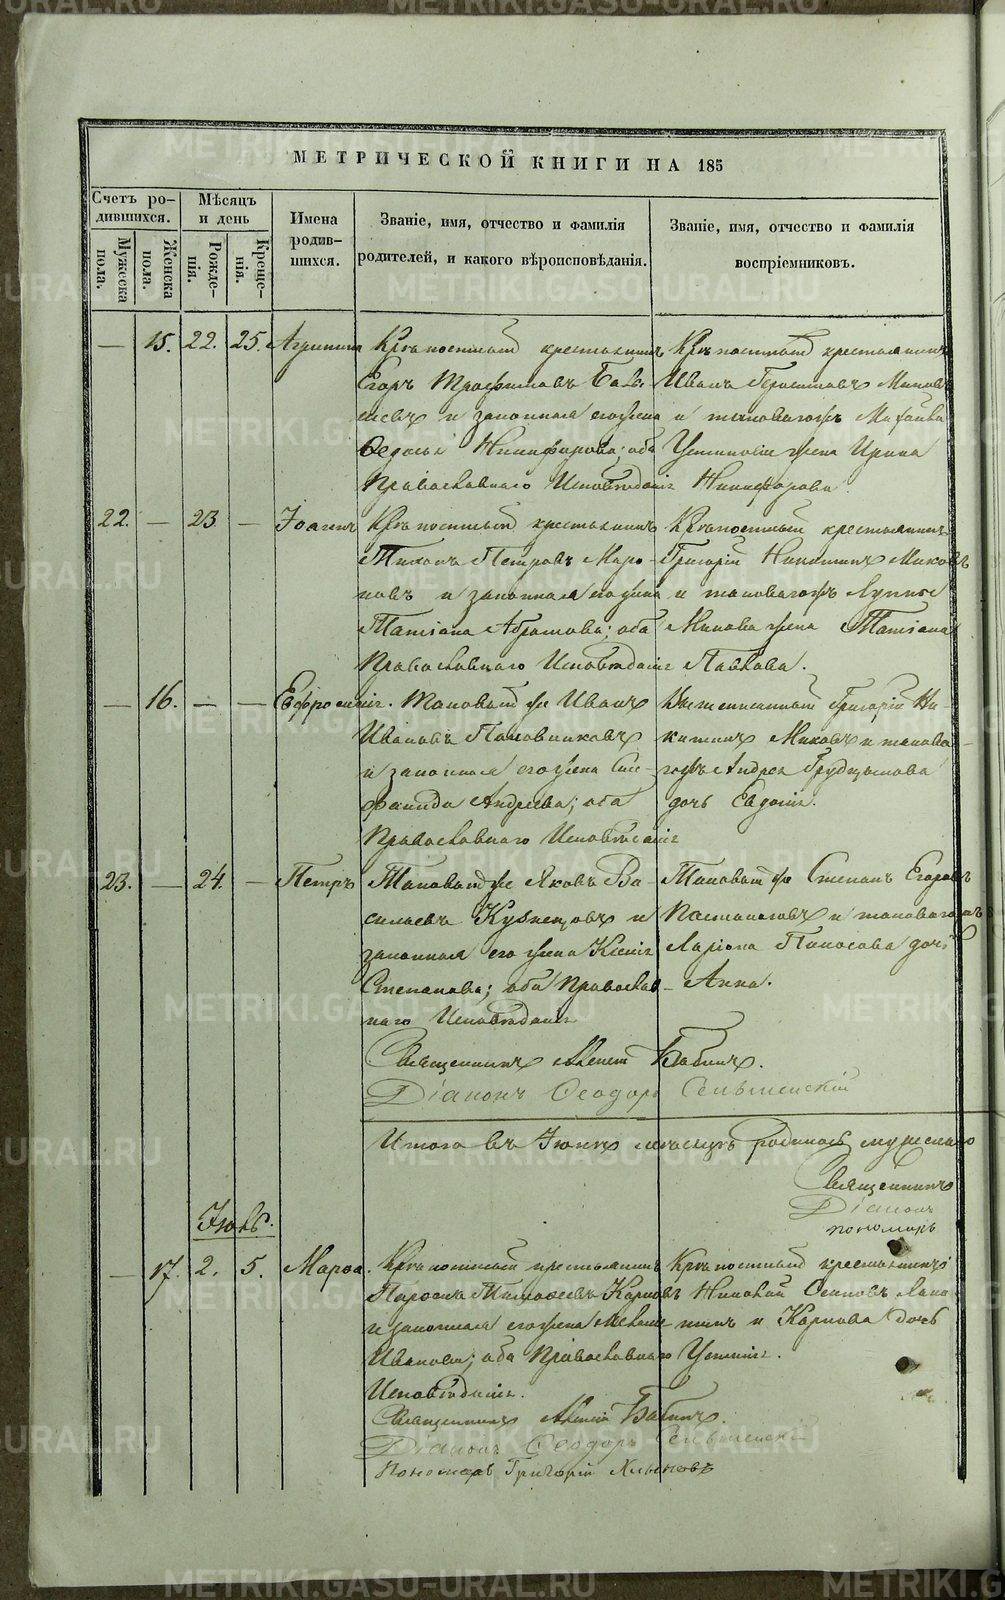 МЕТРИЧЕСКОЙ КНИГИ НА 185
Счетъ ро-
дившихся.
Мужеска
пола.
Женска
пола.
Мѣсяцъ
и день
Рожде-
нія.
Креще-
нія.
Имена
родив-
шихся.
Званіе, имя, отчество и фамилія
родителей, и какого вѣроисповѣданія.
Званіе, имя, отчество и фамилія
воспріемниковъ.
— 15. 22. 25. Агрипина Крѣпостный крестьянинъ
Егоръ Трофимовъ
и законная его жена
Ѳедосья Никифорова; оба
Православнаго Исповѣданія
Крѣпостный крестьянинъ
Иванъ
и таковагожъ
Устинова жена Ирина
Никифорова.
22. — 23 — Іоаннъ Крѣпостный крестьянинъ
Тихонъ Петровъ Маро-
новъ и законная его жена
Татіана Абрамова; оба
Православнаго Исповѣданія
Крѣпостный крестьянинъ
Григорій Никитинъ Миковъ
и таковагожъ
Микова жена Татіана
Павлова.
— 16. — — Евфросинія. Таковый же Иванъ
Ивановъ Половниковъ
и законная его жена Сте-
фанида Андреева; оба
Православнаго Исповѣданія
Вышеписанный Григорій Ни-
китинъ Миковъ и таковаго-
жъ Андрея Грудцынова
дочь Евдокія.
23. — 24. — Петръ Таковый же Яковъ Ва-
сильевъ Кузнецовъ и
законная его жена Ксенія
Степанова; оба Православ-
наго Исповѣданія
Таковый же Степанъ Егоровъ
и таковагожъ
Ларіона Паносова дочь
Анна.
Священникъ Бабинъ.
Діаконъ Ѳеодоръ
Итого въ Іюнѣ мѣсяцѣ родилось мужескаго
Священникъ
Діаконъ
пономарь
Іюль.
— 17. 2. 5. Марѳа. Крѣпостный крестьянинъ
Тимофеевъ Карповъ
и законная его жена
Иванова; оба Православнаго
Исповѣданія.
Крѣпостный крестьянинъ
Николай Осиповъ
и Карпова дочь
Устинія.
Священникъ Бабинъ.
Діаконъ Ѳеодоръ
Пономарь Григорій
METRIKI.GASO-URAL.RU